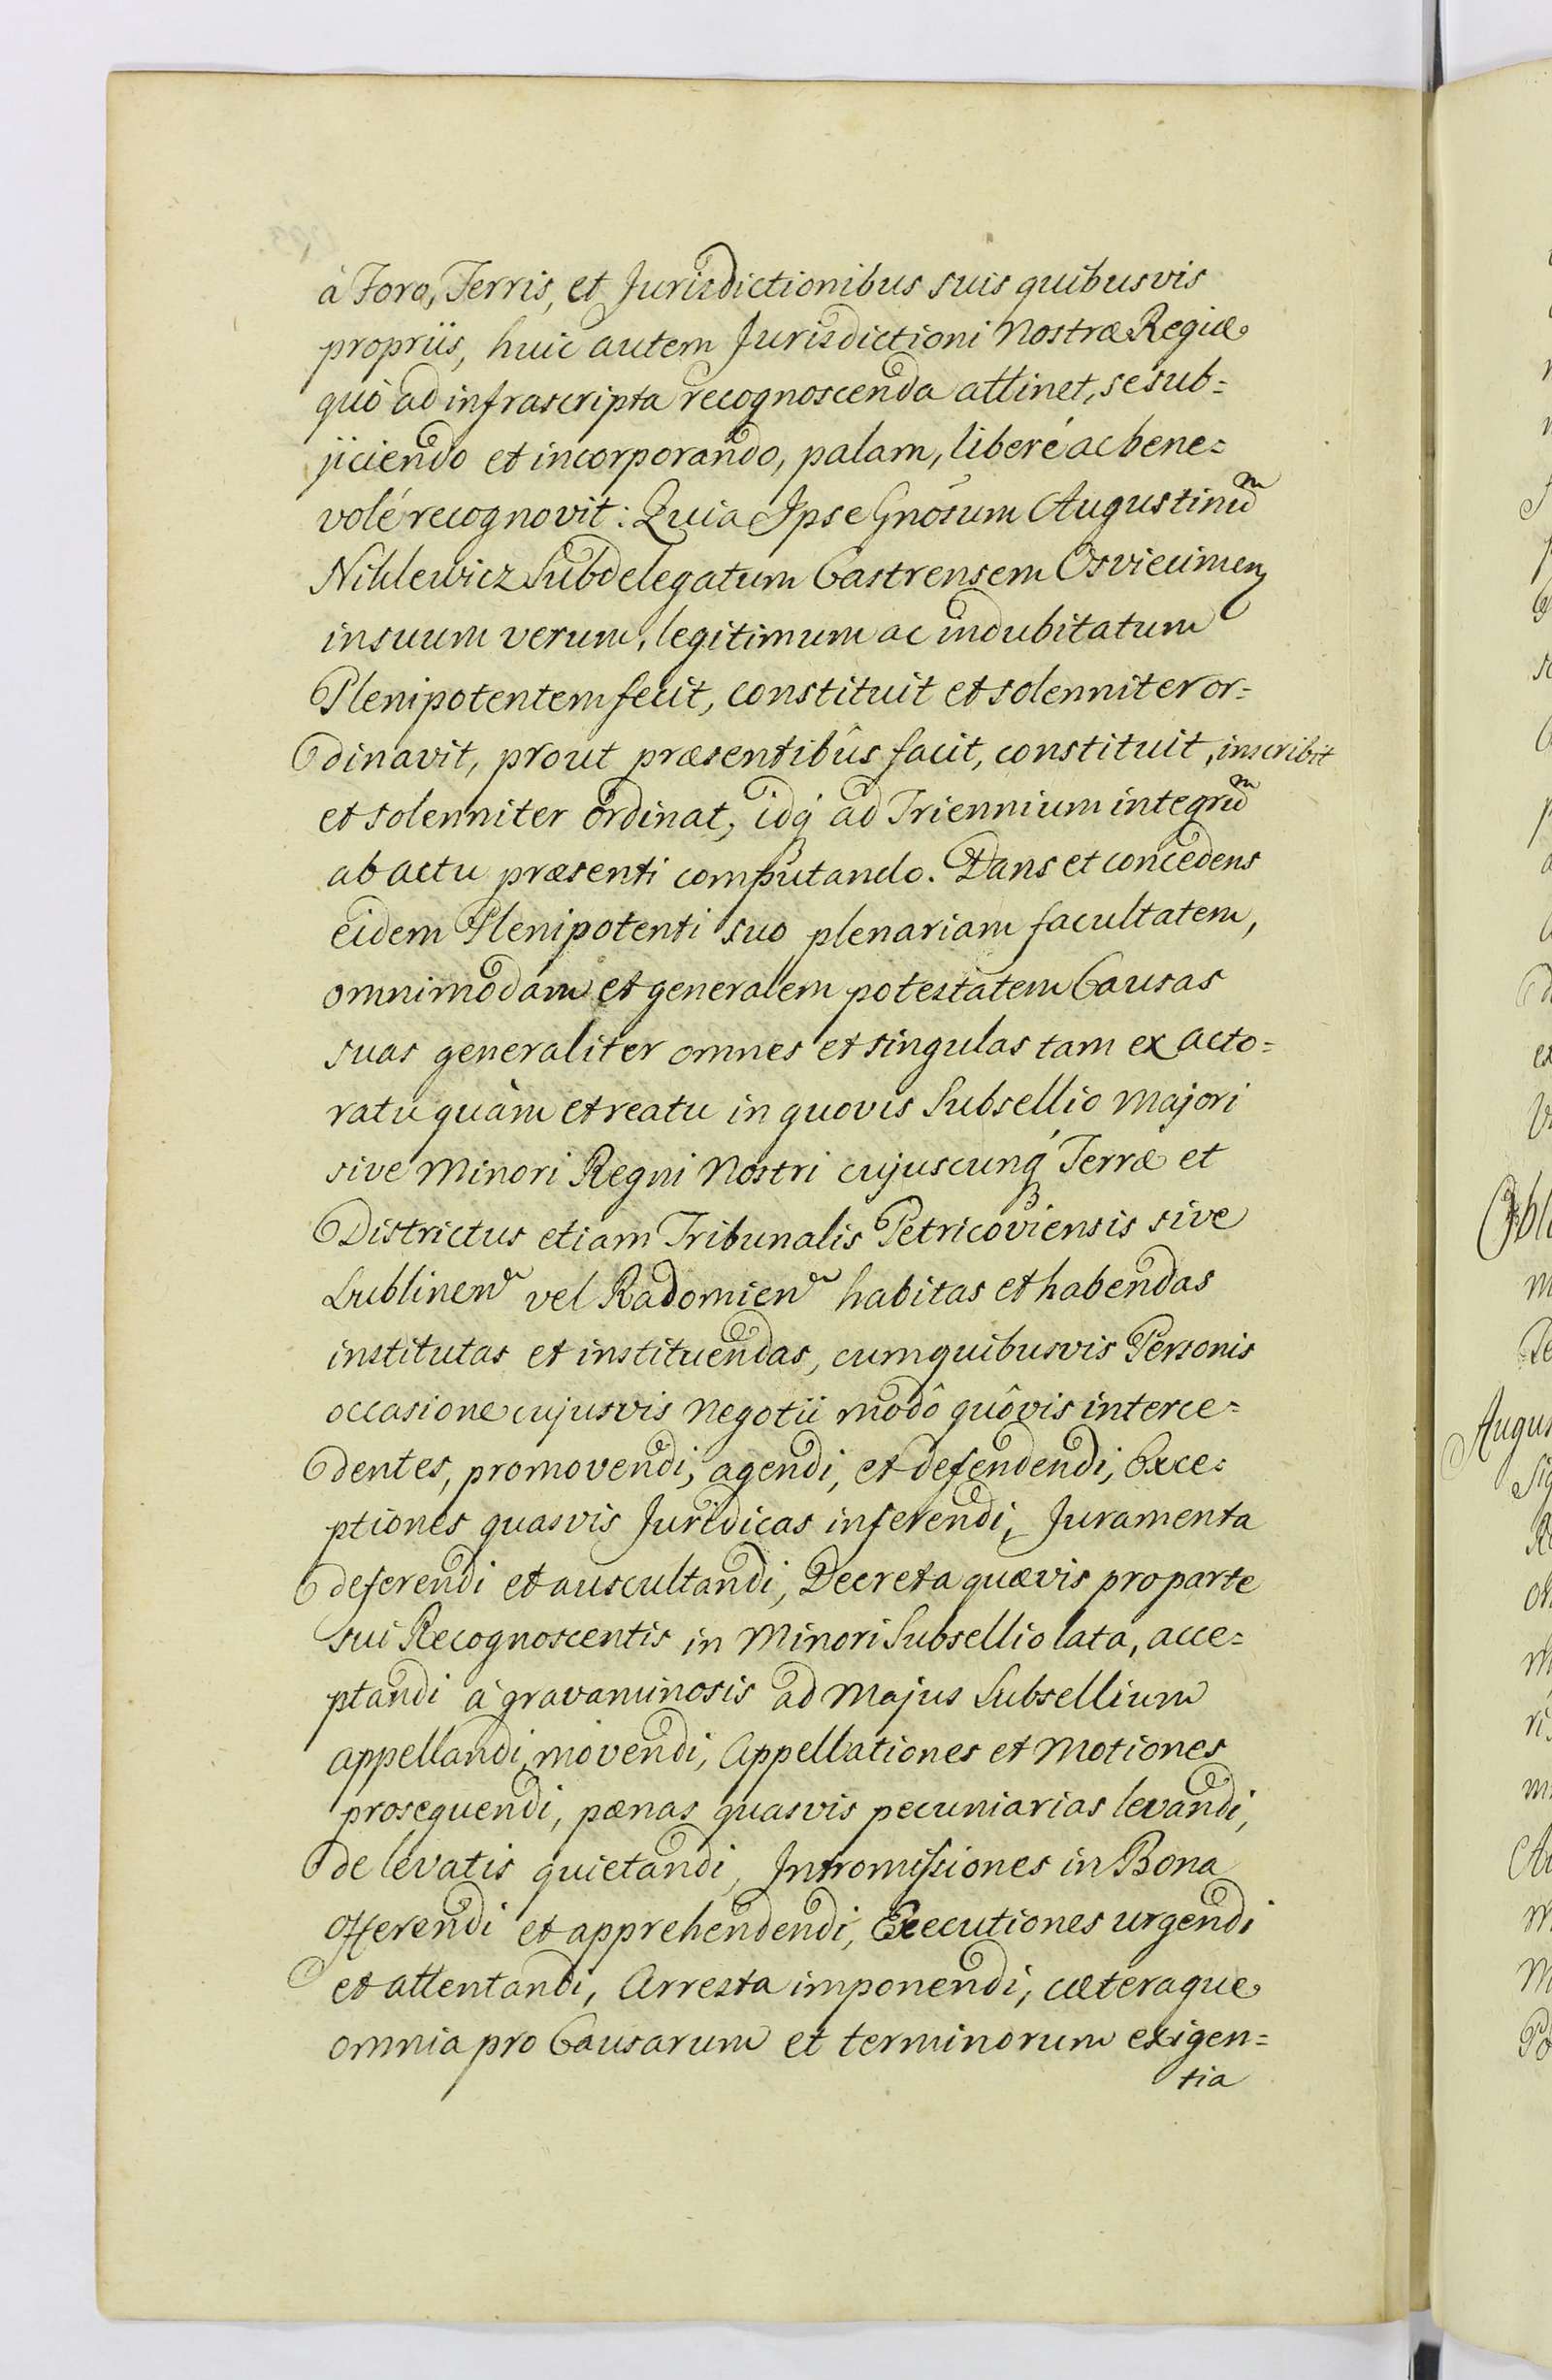 à Foro, Terris, et Jurisdictionibus suis quibusvis
propriis, huic autem Jurisdictioni Nostræ Regiæ
quò ad infrascripta recognoscenda attinet, se sub=
jiciendo et incorporando, palam, liberé ac bene=
volé recognovit: Quia Ipse Gnosum Augustinũm
Niklewicz Subdelegatum Castrensem Osviecimen
in suum verum, legitimum ac indubitatum
Plenipotentem fecit, constituit et solenniter or=
dinavit, prout præsentibûs facit, constituit, inscribit
et solenniter ordinat, idq́ ad Triennium integrũm
ab actu præsenti computando. Dans et concedens
eidem Plenipotenti suo plenariam facultatem,
omnimodam et generalem potestatem Causas
suas generaliter omnes et singulas tam ex acto=
ratu quàm et reatu in quovis Subsellio Majori
sive Minori Regni Nostri cujuscunq́ Terræ et
Districtus etiam Tribunalis Petricoviensis sive
Lublinen vel Radomien habitas et habendas
institutas et instituendas, cum quibusvis Personis
occasione cujusvis Negotii modô quôvis interce=
dentes, promovendi, agendi, et defendendi, Exce=
ptiones quasvis Juridicas inferendi, Juramenta
deferendi et auscultandi, Decreta quævis pro parte
sui Recognoscentis in Minori Subsellio lata, acce=
ptandi à gravaminosis ad Majus Subsellium
appellandi, movendi, Appellationes et Motiones
prosequendi, pænas quasvis pecuniarias levandi,
de levatis quietandi, Intromissiones in Bona
offerendi et apprehendendi, Executiones urgendi
et attentandi, Arresta imponendi, cæteraque
omnia pro Causarum et terminorum exigen=
tia